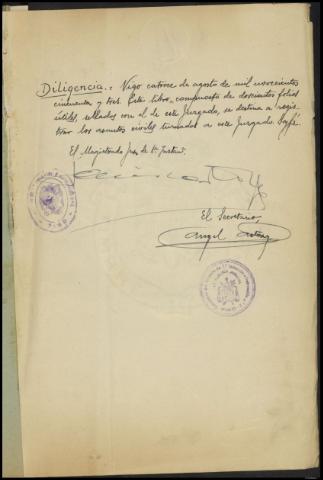 Diligencia.: Vigo catorce de agosto de mil novecientos
cincuenta y tres. Este libro, compuesto de doscientos folios
útiles, sellados con el de este Juzgado, se destina a regis
trar los asuntos civiles turnados a este Juzgado. Doy fé.
El Magistrado Juez de 1ª Instancia,
El Secretario,
Angel